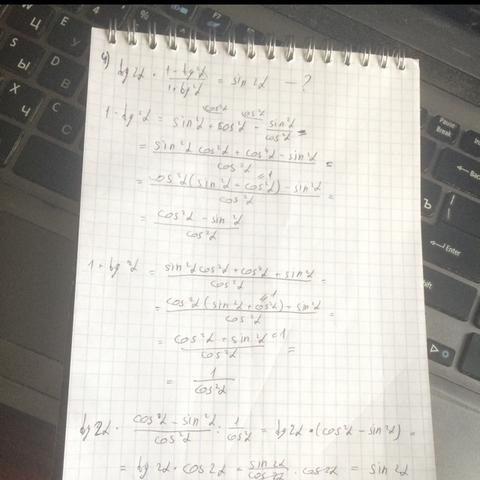 4) tg 2α · (1 - tg²α)/(1 + tg²α) = sin 2α — ?
cos²α cos²α
1 - tg²α = sin²α + cos²α - sin²α/cos²α =
= (sin²α cos²α + cos²α - sin²α)/cos²α =
= (cos²α (sin²α + cos²α) - sin²α)/cos²α =
= (cos²α - sin²α)/cos²α
1 + tg²α = (sin²α cos²α + cos²α + sin²α)/cos²α =
= (cos²α (sin²α + cos²α) + sin²α)/cos²α =
= (cos²α + sin²α = 1)/cos²α =
= 1/cos²α
tg 2α · (cos²α - sin²α)/cos²α : 1/cos²α = tg 2α · (cos²α - sin²α) =
= tg 2α · cos 2α = sin 2α/cos 2α · cos 2α = sin 2α
Pause Break
Insert
Enter
Shift